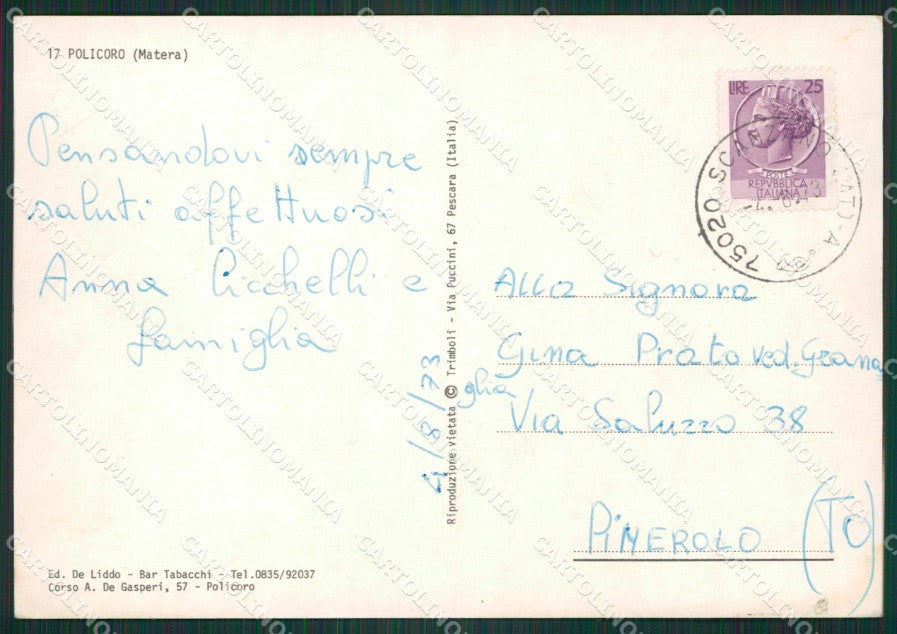 17 POLICORO (Matera)
Pensandovi sempre
saluti affettuosi
Anna Cicchelli e
famiglia
4/8/73
Ed. De Liddo - Bar Tabacchi - Tel.0835/92037
Corso A. De Gasperi, 57 - Policoro
Riproduzione vietata © Trimboli - Via Puccini, 67 Pescara (Italia)
LIRE 25
POSTE
REPVBBLICA
ITALIANA
75020 SCANZANO
Alla Signora
Gina Prato ved. Grana
glia
Via Saluzzo 38
PINEROLO (TO)
CARTOLINOMANIA